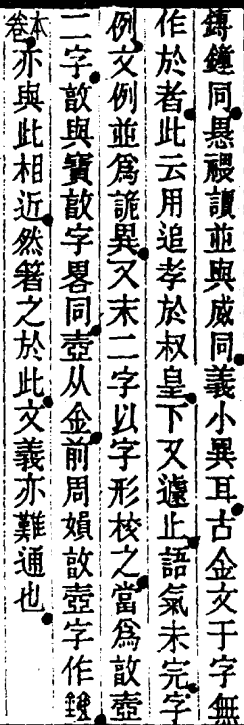 鎛鐘同㬎禐讀並與威同義小異耳古金文于字無
作於者此云用追孝於叔皇下又遽止語氣未完字
例文例並爲詭異又末二字以字形校之當爲㪤壺
二字㪤與寶㪤字畧同壺从金前周嬛㪤壺字作鍷
本卷亦與此相近然箸之於此文義亦難通也